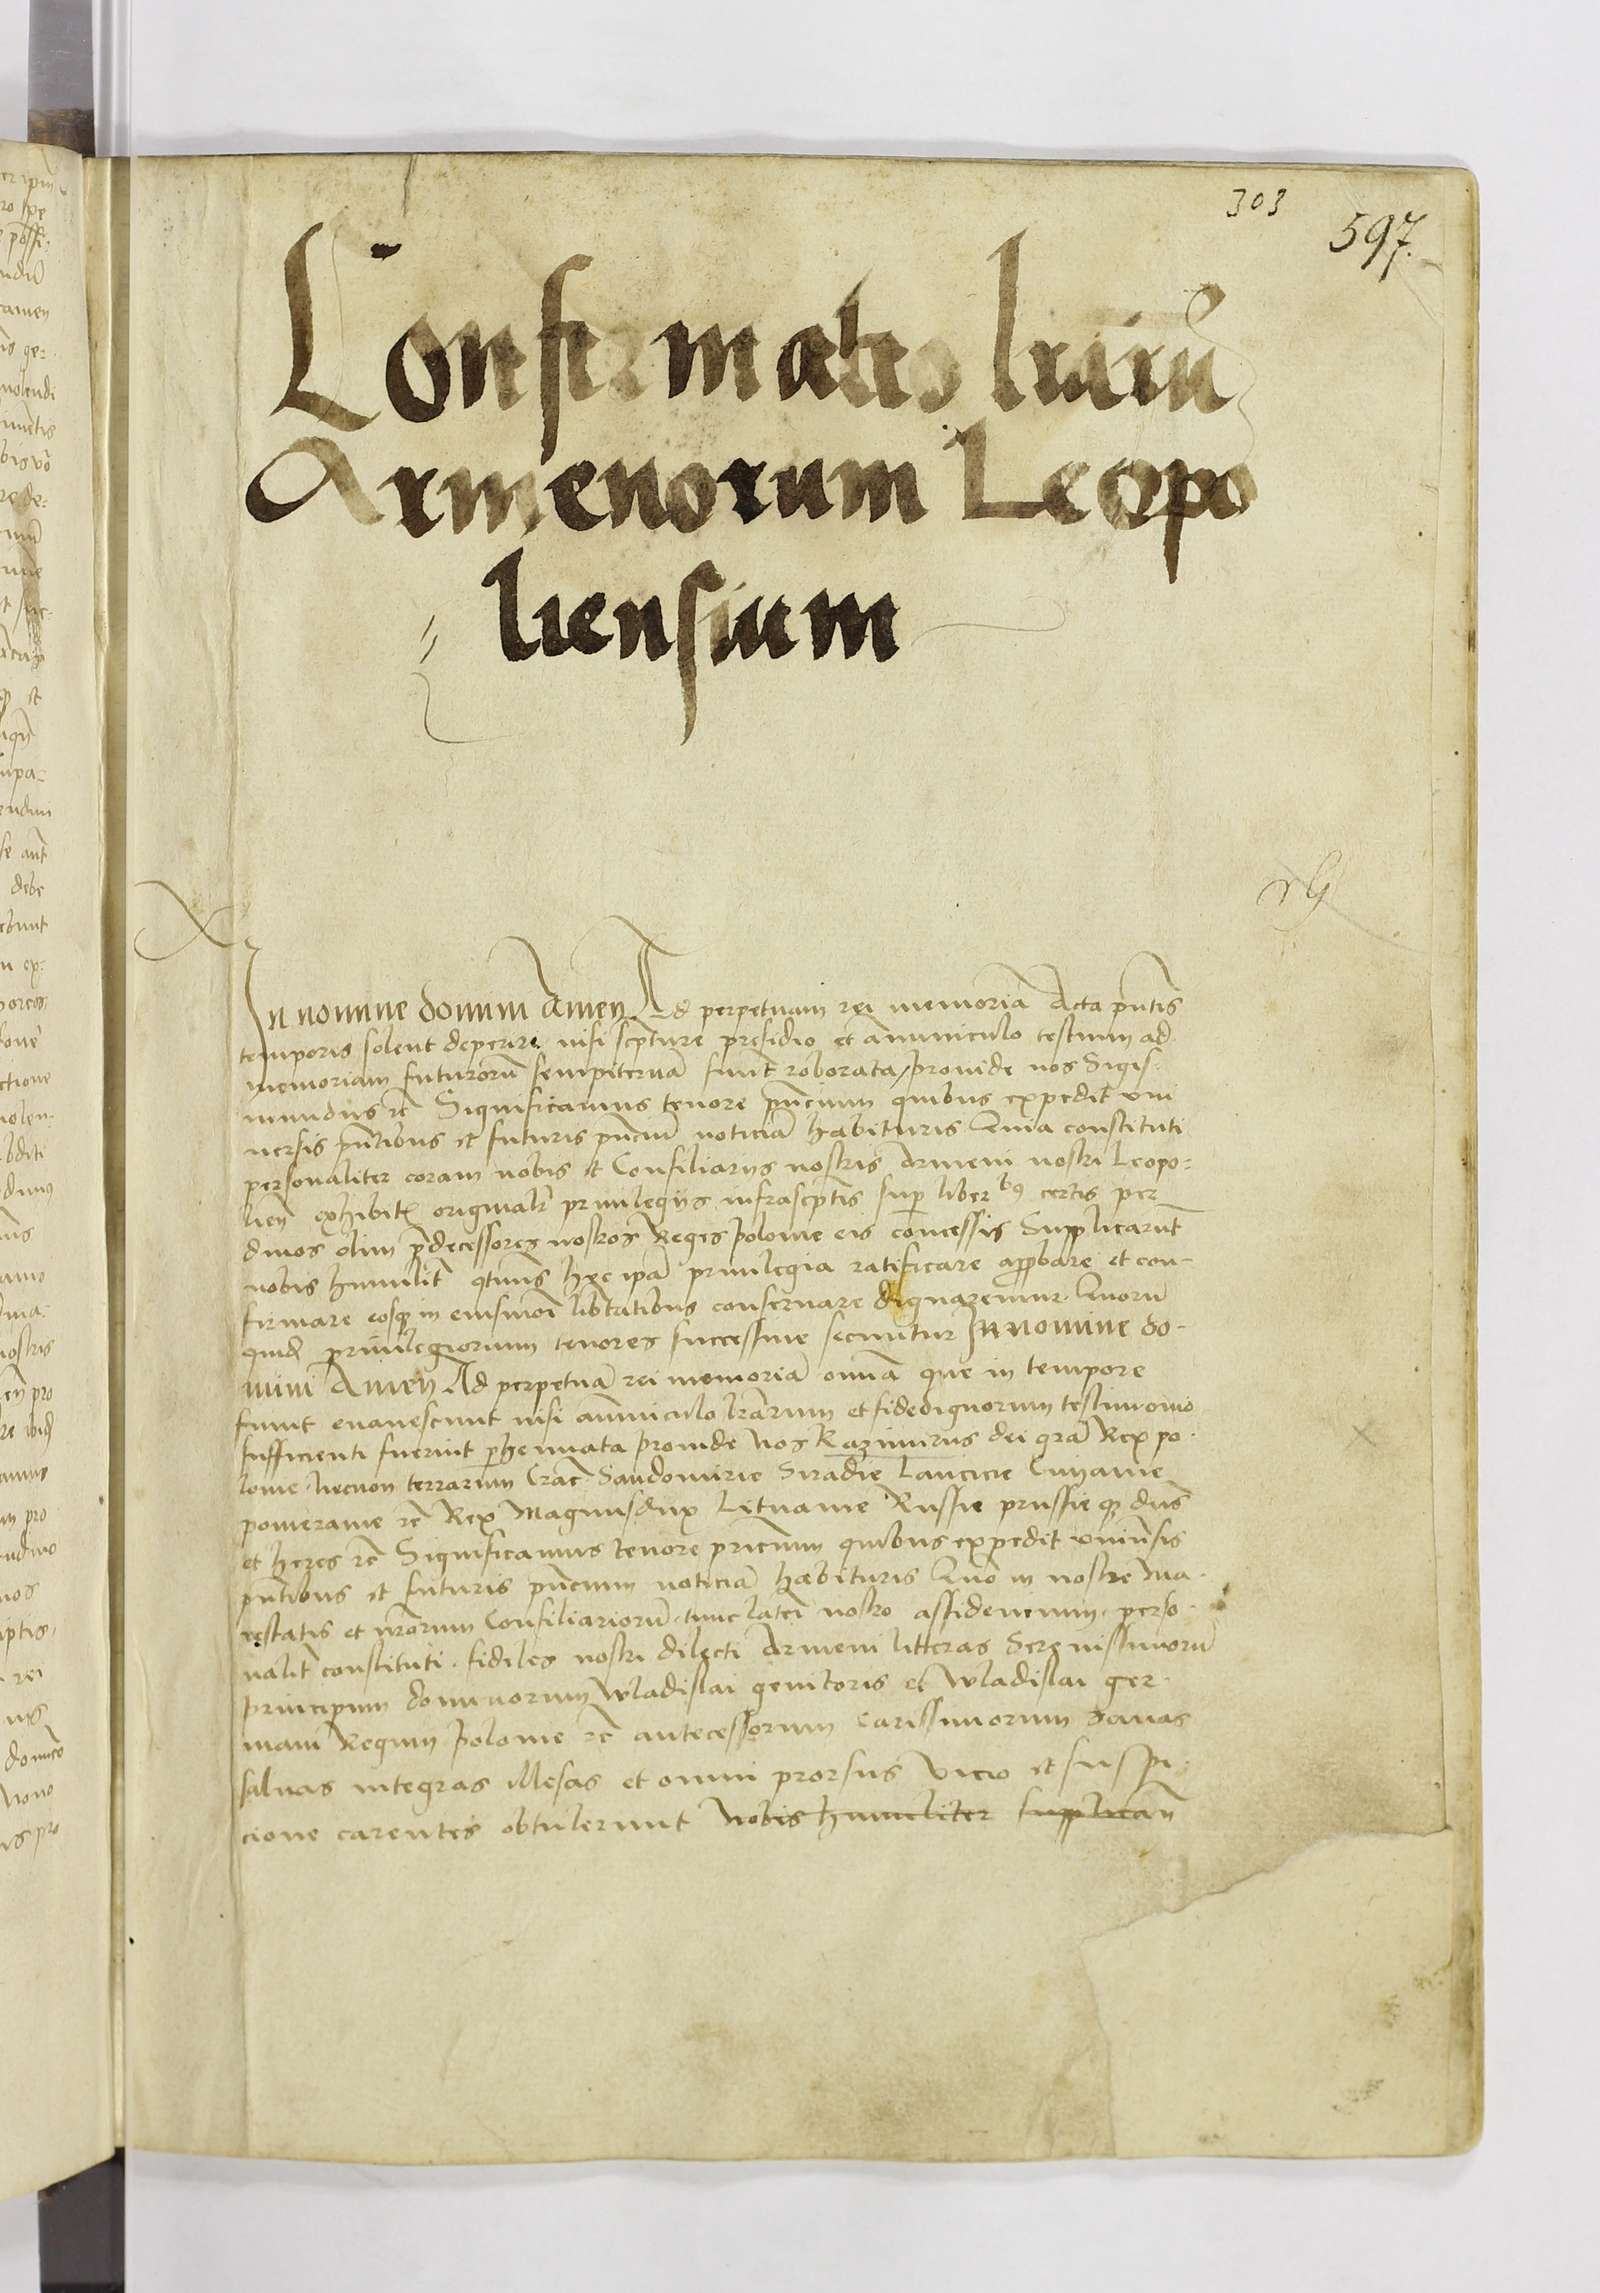 303
597.
Confirmatio lrarū
Armenorum Leopo
liensium
In nomine domini Amen Ad perpetuam rei memoriā Acta pn̄tis
temporis solent deperire nisi scpture presidio et amminiculo testium ad
memoriam futurorū sempiternā sint roborata / proinde nos Sigis-
mundus rc̄ Significamus tenore pn̄cium quibus expedit vni
uersis pn̄tibus et futuris pn̄ciū noticiā habituris Quia constituti
personaliter coram nobis et Consiliarijs nostris Armeni nostri Leopo-
lien̄ exhibitꝭ originalib privilegijs infrascptis sup liber tbꝰ certis per
diuos olim p̄decessores nostros Reges polonie eis concessis Supplicarūt
nobis humilit̄ qtinꝰ hec ip̄a priuilegia ratificare approbare et con-
firmare eosqꝫ in eiusmōi lib̄tatibus conseruare dignaremur Quorū
quidē priuilegiorum tenores successiue secuntur In nomine do-
mini Amen Ad perpetuā rei memoriā omīa que in tempore
fiunt euanescunt nisi aminiculo lr̄arum et fidedignorum testimonio
sufficienti fuerint p̄hennata proinde Nos Kazimirus dei gr̄a Rex po-
lonie necnon terrarum Crac̄ Sandomirie Siradie Lancicie Cuyauie
pomeranie rc̄ Rex Magnus dux Lituanie Russie prussieqꝫ dn̄s
et heres rc̄ Significamus tenore pn̄cium quibus expedit vniu̅sis
pn̄tibus et futuris pn̄cium noticiā habituris Quō in nostre Ma-
iestatis et nr̄orum Consiliariorū tunc lateri nostro assidencium perso-
nalit̄ constituti fideles nostri dilecti Armeni litteras Serenissimorū
principum dominorum Wladislai genitoris et Wladislai ger-
mani Regum polonie rc̄ antecessorum carissimorum sanas
saluas integras illesas et omni prorsus vicio et suspi-
cione carentes obtulerunt nobis humiliter supplican̄